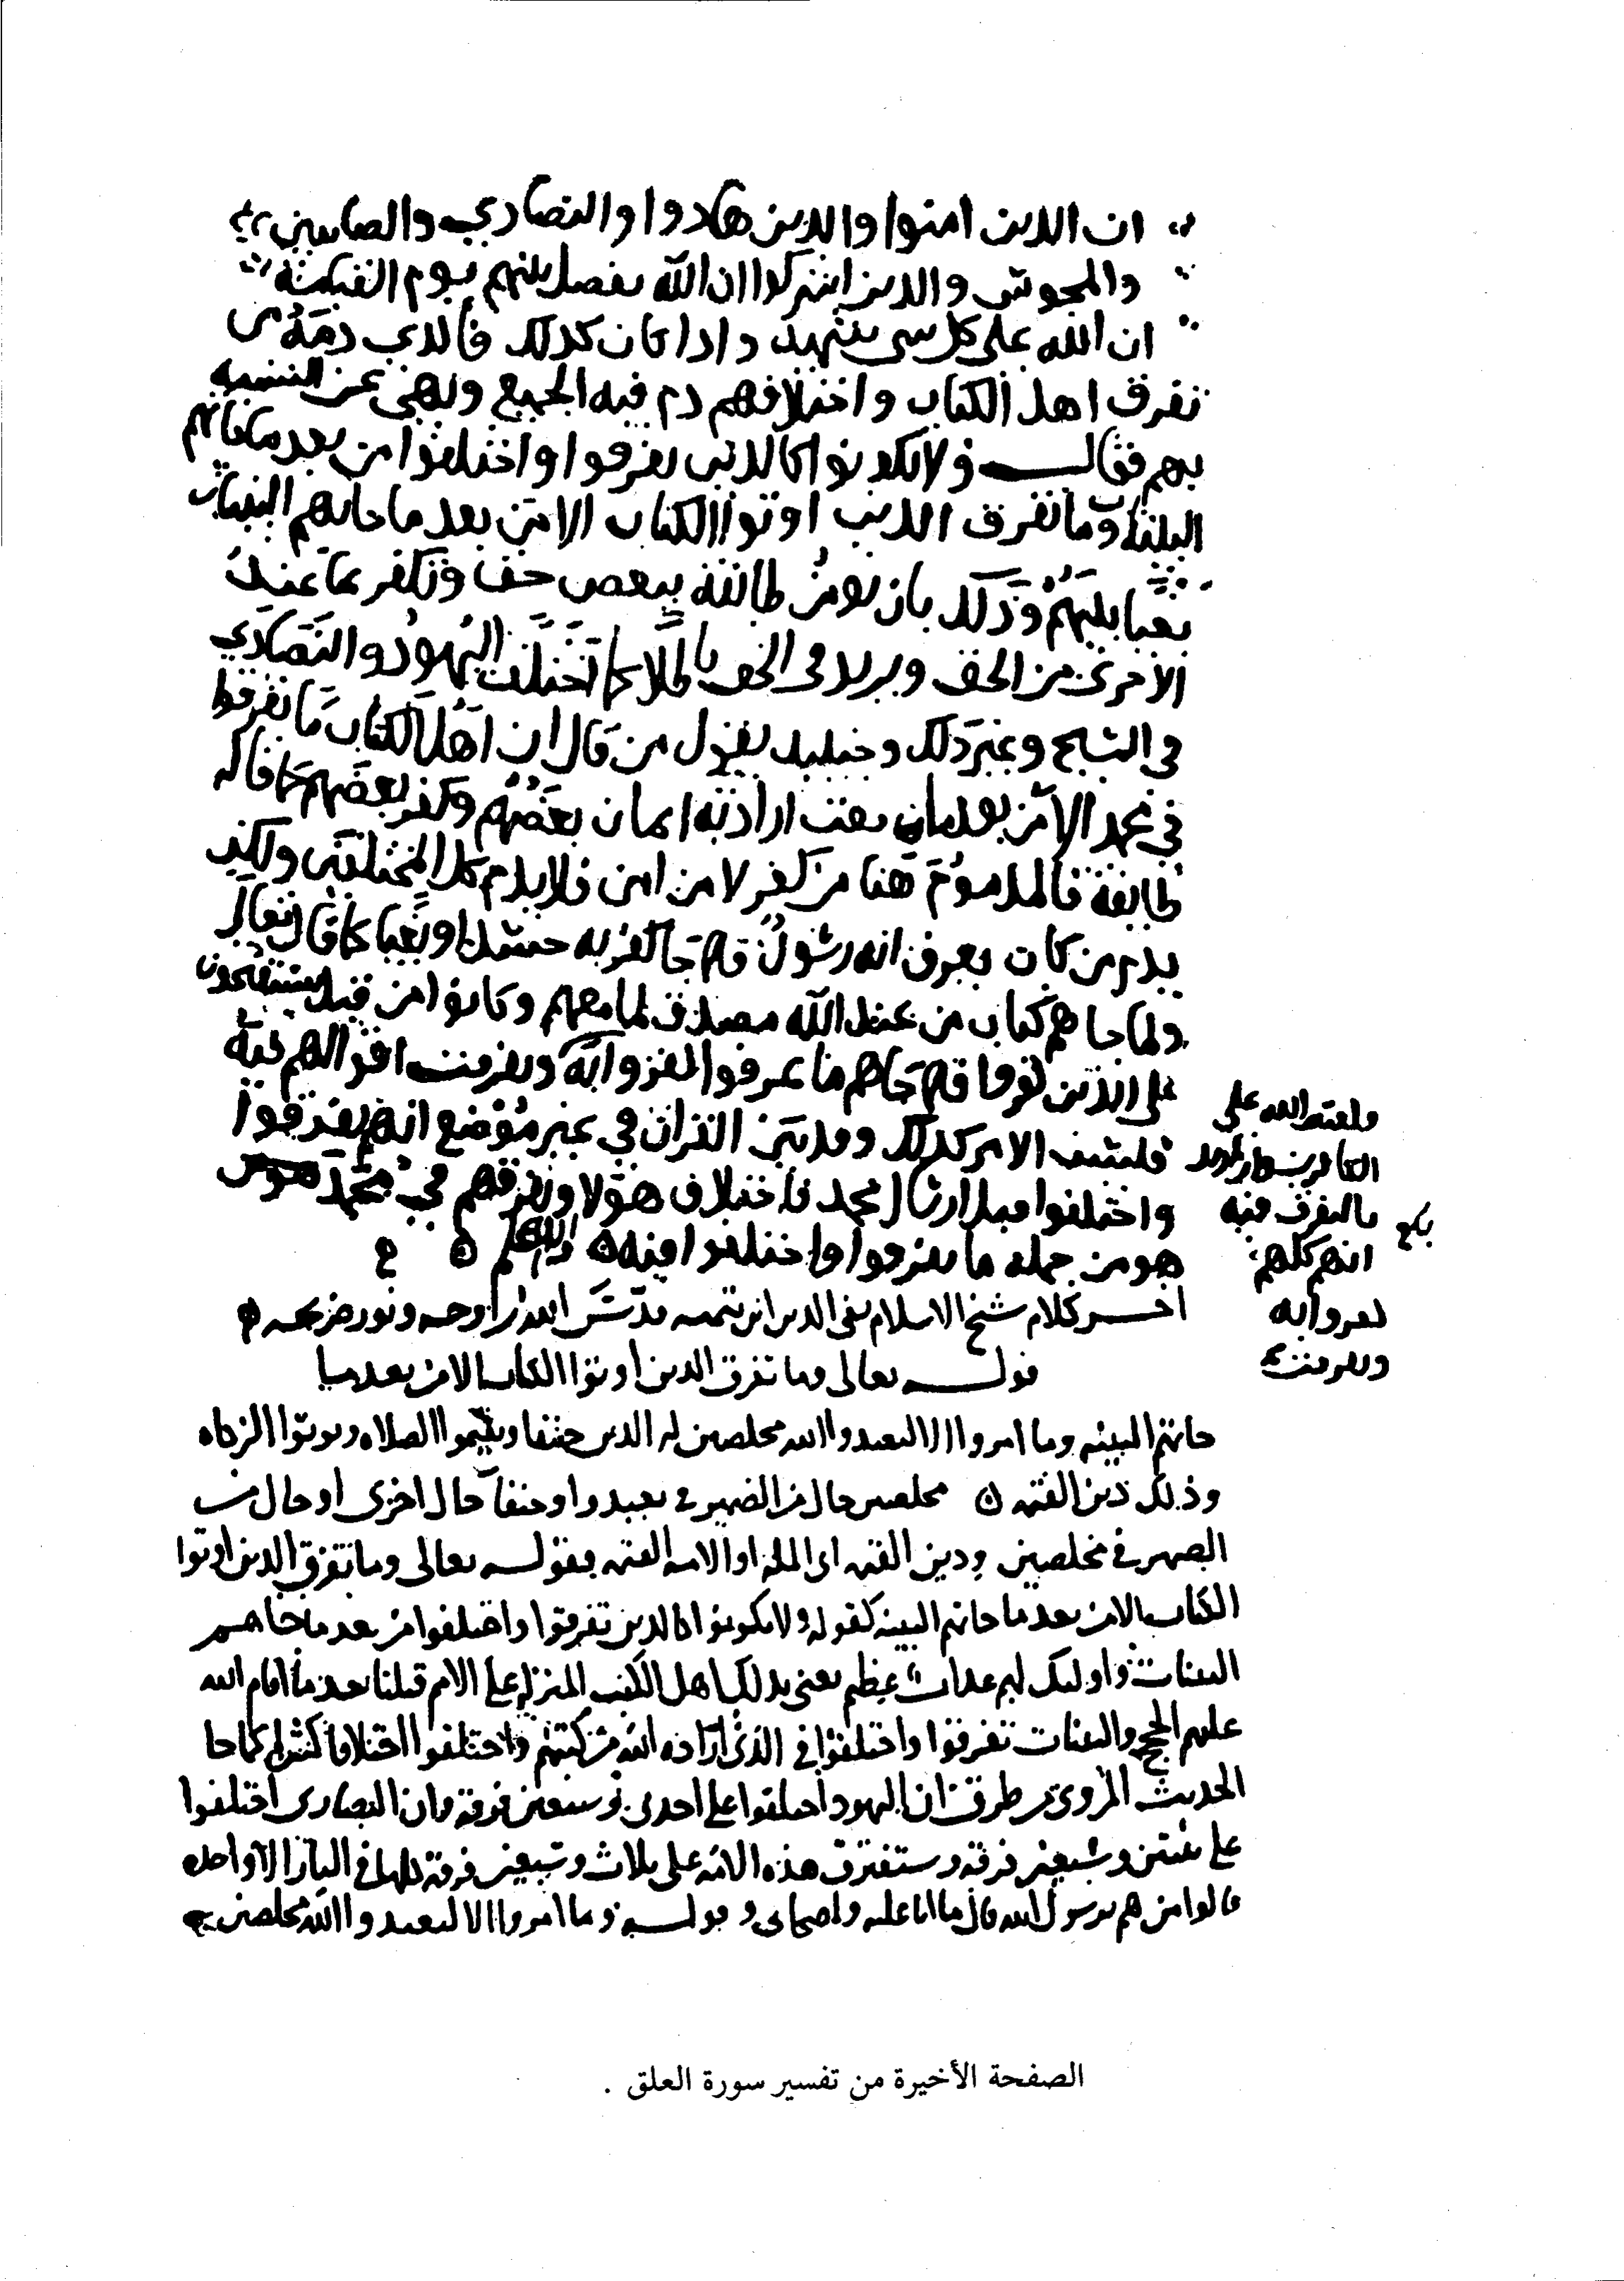 ان الدين امنوا والدين هادوا والنصاري والصابين
والمجوس والدين اشركوا ان الله يفصل بينهم يوم القيمة
ان الله على كل سى شهيد واداكان كدلك فالدي دمه من
تفرق اهل الكتاب واختلافهم دم فيه الجميع ونهى عن التشبه
بهم فقال ولا تكونوا كالدين تفرقوا واختلفوا من بعد ماجاهم
البينات وما تفرق الدين اوتوا الكتاب الا من بعد ما جاتهم البينات
بغيا بينهم وذلك بان تومن طائفة ببعض حق وتكفر بما عند
الاخرى من الحق ويزيد فى الحق باطلا كما اختلف اليهود والنصاري
في المسيح وغير ذلك وحينيد يقول من قال ان اهل الكتاب ما تفرقوا
في محمد الا من بعد ما بعث اراد به ايمان بعضهم وكفر بعضهم كما قاله
طايفة فالمدموم هنا من كفر لا من امن فلا يدم كل المختلفين ولكن
يدم من كان يعرف انه رسول فلما جا كفر به حسدا او بغيا كما قال تعالى
ولما جاهم كتاب من عند الله مصدق لما معهم وكانوا من قبل يستفتحون
على الذين كفروا فلما جاهم ما عرفوا كفروا به وتفرقت اقوالهم فيه
فليس الامر كدلك وقد بين القران في غير موضع انهم تفرقوا
واختلفوا قبل ارسال محمد فاختلاف هولا وتفرقهم في محمد
هو من جمله ما تفرقوا واختلفوا فيه والله اعلم
فلعنة الله على
الكافرين
بالتفرق فيه
انهم كلهم
كفروا به
وتفرقت
اخر كلام شيخ الاسلام تقى الدين ابن تيميه قدس الله روحه ونور ضريحه
قوله تعالى وما تفرق الدين اوتوا الكتاب الا من بعد ما
جاتهم البينه وما امروا الا ليعبدوا الله مخلصين له الدين حنفا ويقيموا الصلاه ويوتوا الزكاه
وذلك دين القيمه مخلصين حال من الضمير في يعبدوا وحنفا حال اخرى او حال من
الضمير في مخلصين ودين القيمه اى المله او الامه القيمه فقوله تعالى وما تفرق الدين اوتوا
الكتاب الا من بعد ما جاتهم البينه كقوله ولا تكونوا كالدين تفرقوا واختلفوا من بعد ما جاهم
البينات واوليك لهم عداب عظيم يعنى بدلك اهل الكتب المنزله على الامم قبلنا بعد ما اقام الله
عليهم الحجج والبينات تفرقوا واختلفوا في الذى اراده الله من كتبهم واختلفوا اختلافا كثيرا كما جا
الحديث المروى من طرق ان اليهود اختلفوا على احدى وسبعين فرقه وان النصارى اختلفوا
على ثنتين وسبعين فرقه وستفترق هذه الامه على ثلاث وسبعين فرقة كلها في النار الا واحده
قالوا من هم يرسول الله قال ما انا عليه واصحابي وقوله وما امروا الا ليعبدوا الله مخلصين
الصفحة الأخيرة من تفسير سورة العلق .